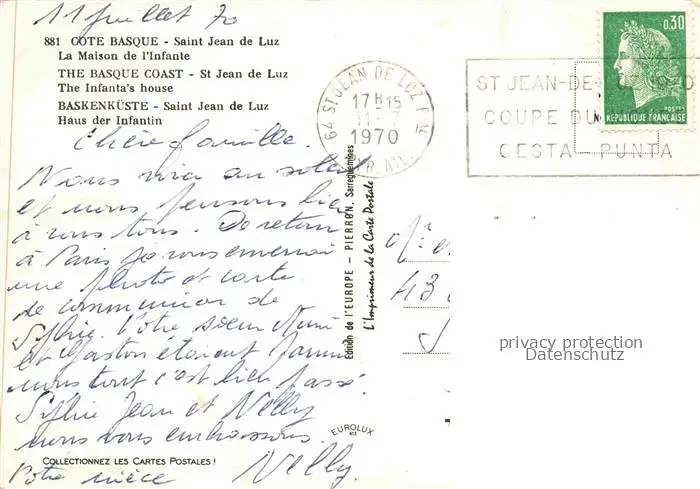 11 juillet 70
881 COTE BASQUE - Saint Jean de Luz
La Maison de l'Infante
THE BASQUE COAST - St Jean de Luz
The Infanta's house
BASKENKÜSTE - Saint Jean de Luz
Haus der Infantin
Chère famille.
Nous voici au soleil
et nous pensons bien
à vous tous. De retour
à Paris je vous enverrai
une photo et carte
de communion de
Sylvie. Votre soeur
et Gaston étaient parmi
nous tout c'est bien passé.
Sylvie Jean et Nelly
nous vous embrassons.
Votre nièce Nelly.
COLLECTIONNEZ LES CARTES POSTALES!
EUROLUX
Edition de l'EUROPE - PIERRON, Sarreguemines
L'Imprimeur de la Carte Postale
64 ST JEAN DE LUZ
17 H 15
11 - 7
1970
ST JEAN-DE-
COUPE DU
CESTA PUNTA
0,30
POSTES
REPUBLIQUE FRANÇAISE
43
privacy protection
Datenschutz